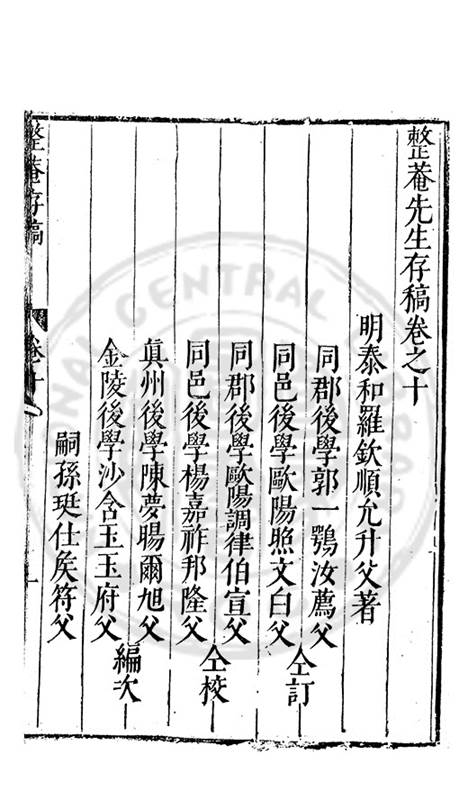 整菴先生存稿卷之十
明泰和羅欽順允升父著
同郡後學郭一鶚汝薦父
同邑後學歐陽照文白父
仝訂
同郡後學歐陽調律伯宣父
同邑後學楊嘉祚邦隆父
仝校
真州後學陳夢暘爾旭父
金陵後學沙含玉玉府父
編次
嗣孫珽仕矦符父
整菴存稿
卷十
一
CENTRAL